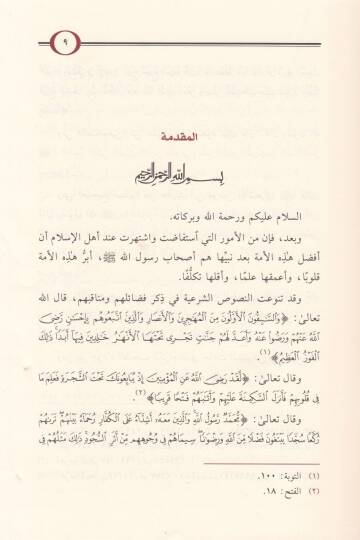 ٩
المقدمة
بسم الله الرحمن الرحيم
السلام عليكم ورحمة الله وبركاته.
وبعد، فإن من الأمور التي استفاضت واشتهرت عند أهل الإسلام أن
أفضل هٰذه الأمة بعد نبيِّها هم أصحاب رسول الله ﷺ، أبرُّ هٰذه الأمة
قلوبًا، وأعمقها علمًا، وأقلها تكلُّفًا.
وقد تنوعت النصوص الشرعية في ذكر فضائلهم ومناقبهم، قال الله
تعالىٰ: ﴿وَالسَّٰبِقُونَ الْأَوَّلُونَ مِنَ الْمُهَٰجِرِينَ وَالْأَنصَارِ وَالَّذِينَ اتَّبَعُوهُم بِإِحْسَٰنٍ رَّضِيَ
اللَّهُ عَنْهُمْ وَرَضُوا عَنْهُ وَأَعَدَّ لَهُمْ جَنَّٰتٍ تَجْرِي تَحْتَهَا الْأَنْهَٰرُ خَٰلِدِينَ فِيهَا أَبَدًا ذَٰلِكَ
الْفَوْزُ الْعَظِيمُ﴾(١).
وقال تعالىٰ: ﴿لَّقَدْ رَضِيَ اللَّهُ عَنِ الْمُؤْمِنِينَ إِذْ يُبَايِعُونَكَ تَحْتَ الشَّجَرَةِ فَعَلِمَ مَا
فِي قُلُوبِهِمْ فَأَنزَلَ السَّكِينَةَ عَلَيْهِمْ وَأَثَٰبَهُمْ فَتْحًا قَرِيبًا﴾(٢).
وقال تعالىٰ: ﴿مُّحَمَّدٌ رَّسُولُ اللَّهِ وَالَّذِينَ مَعَهُ أَشِدَّاءُ عَلَى الْكُفَّارِ رُحَمَاءُ بَيْنَهُمْ تَرَىٰهُمْ
رُكَّعًا سُجَّدًا يَبْتَغُونَ فَضْلًا مِّنَ اللَّهِ وَرِضْوَٰنًا سِيمَاهُمْ فِي وُجُوهِهِم مِّنْ أَثَرِ السُّجُودِ ذَٰلِكَ مَثَلُهُمْ فِي
(١) التوبة: ١٠٠.
(٢) الفتح: ١٨.